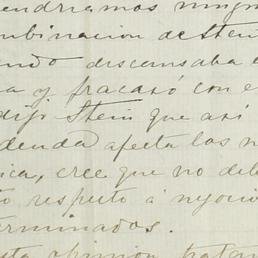 endríamos ningun
mbinacion de Stein
ndo descansaba e
a y fracasó con e
dijo Stein que así
denda afecta los n
ica, cree que no deb
to respecto á negocio
erminados.
sta opinion tratam